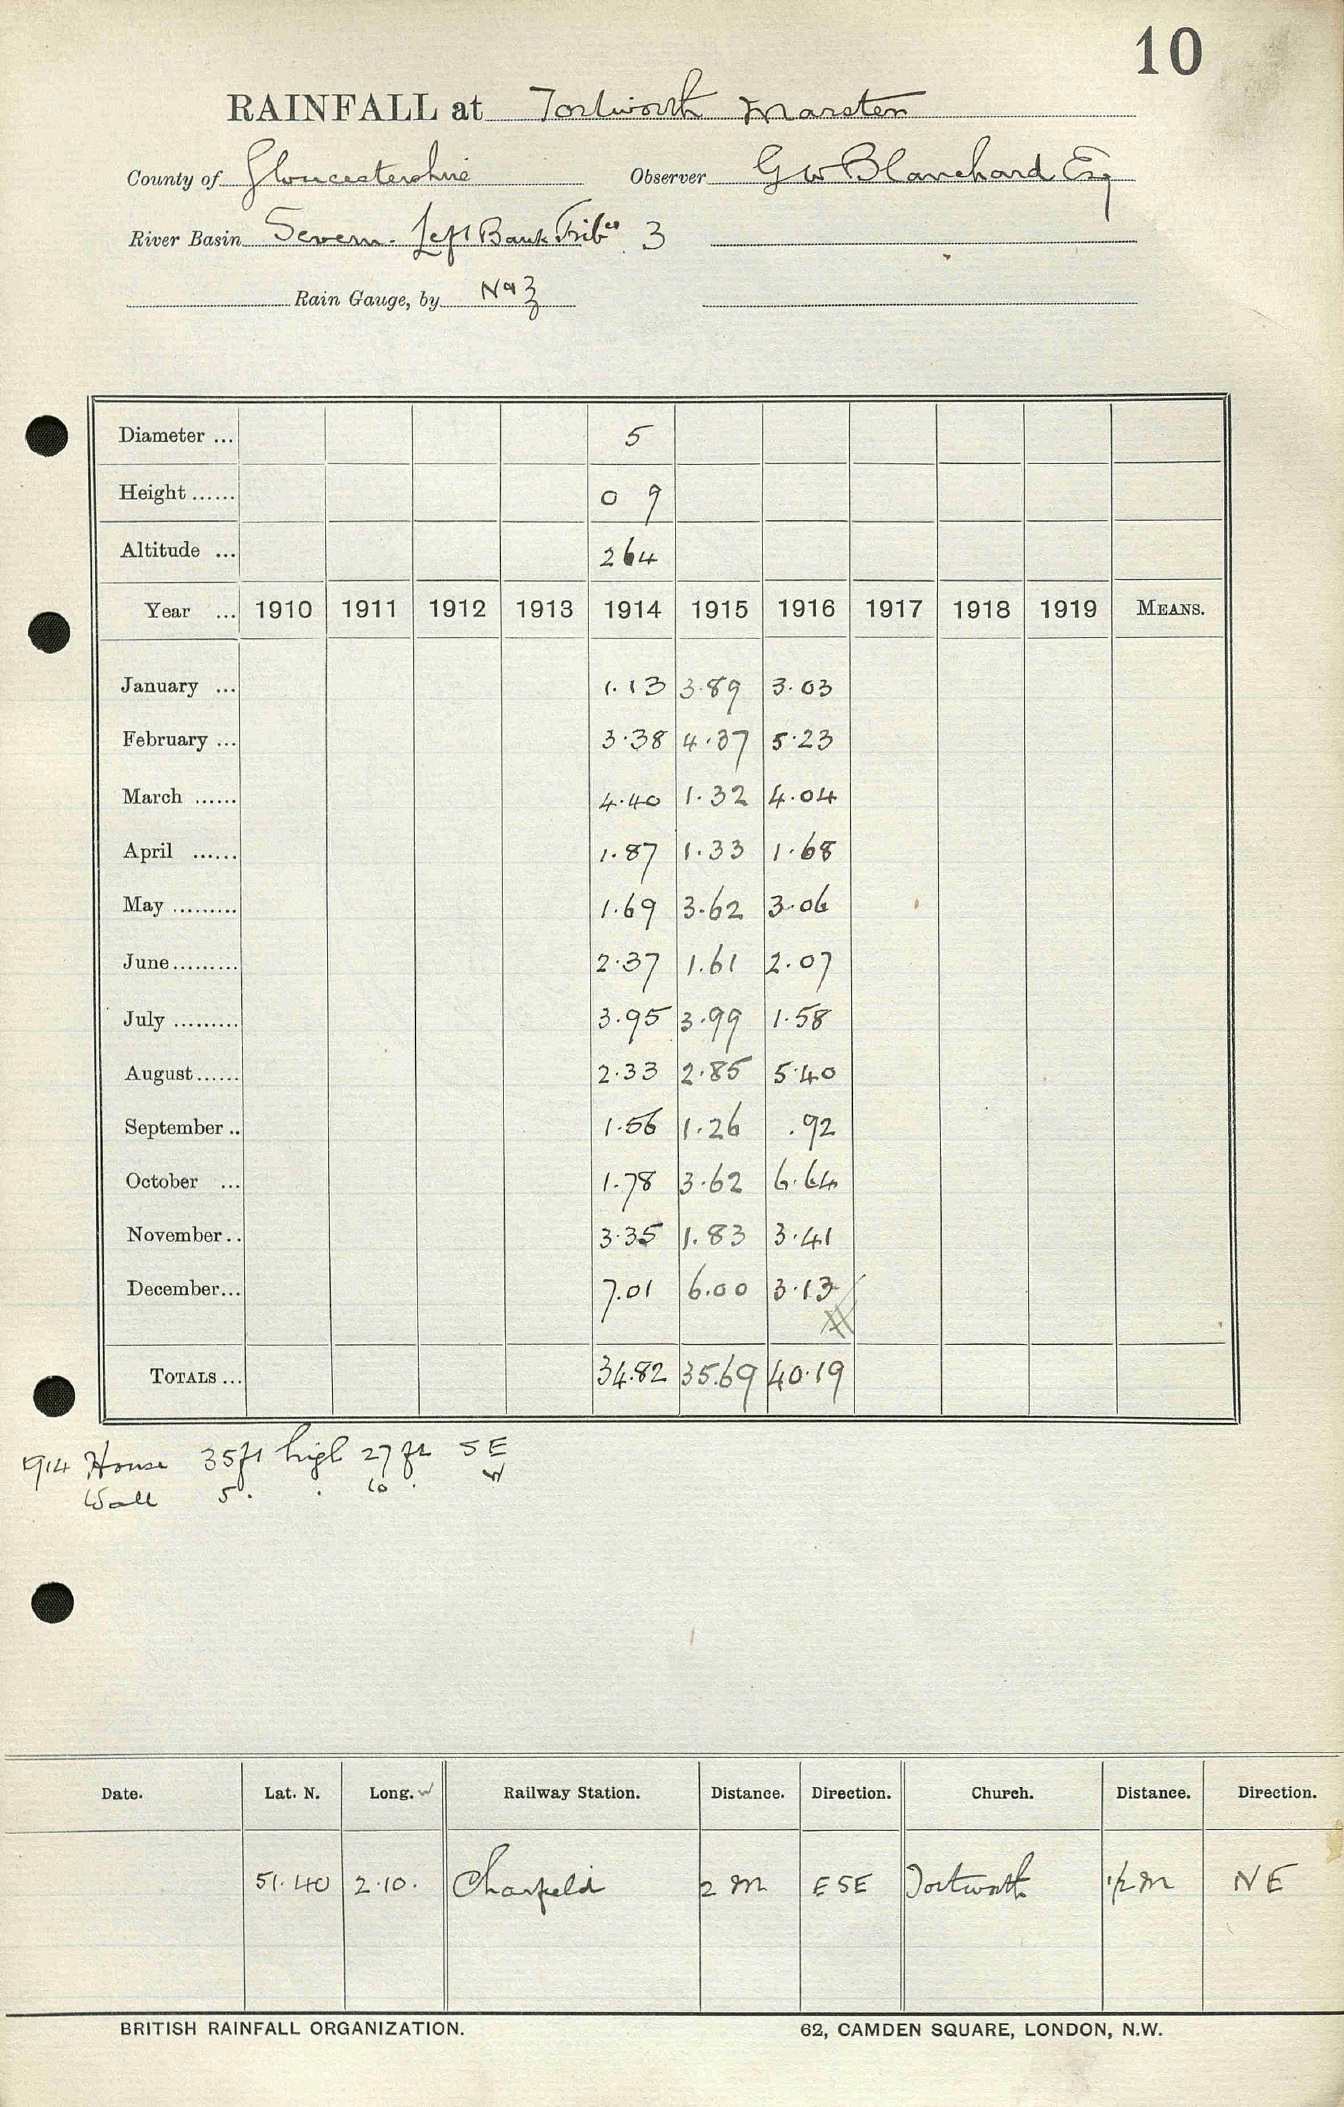 10
RAINFALL at Tortworth Marsten
County of Gloucestershire Observer G W Blanchard Esq
River Basin Severn - Left Bank Tribes 3
Rain Gauge, by N & Z
Diameter ... 5
Height ...... 0 9
Altitude ... 264
Year ... 1910 1911 1912 1913 1914 1915 1916 1917 1918 1919 MEANS.
January ... 1.13 3.89 3.03
February ... 3.38 4.37 5.23
March ...... 4.40 1.32 4.04
April ...... 1.87 1.33 1.68
May ......... 1.69 3.62 3.06
June ......... 2.37 1.61 2.07
July ......... 3.95 3.99 1.58
August ...... 2.33 2.85 5.40
September .. 1.56 1.26 .92
October ... 1.78 3.62 6.64
November .. 3.35 1.83 3.41
December ... 7.01 6.00 3.13
TOTALS ... 34.82 35.69 40.19
1914 House 35ft high 27 ft SE
Wall 5 . . 10 . W
Date. Lat. N. Long. W Railway Station. Distance. Direction. Church. Distance. Direction.
51.40 2.10. Charfield 2 M ESE Tortworth 1/2 M NE
BRITISH RAINFALL ORGANIZATION. 62, CAMDEN SQUARE, LONDON, N.W.